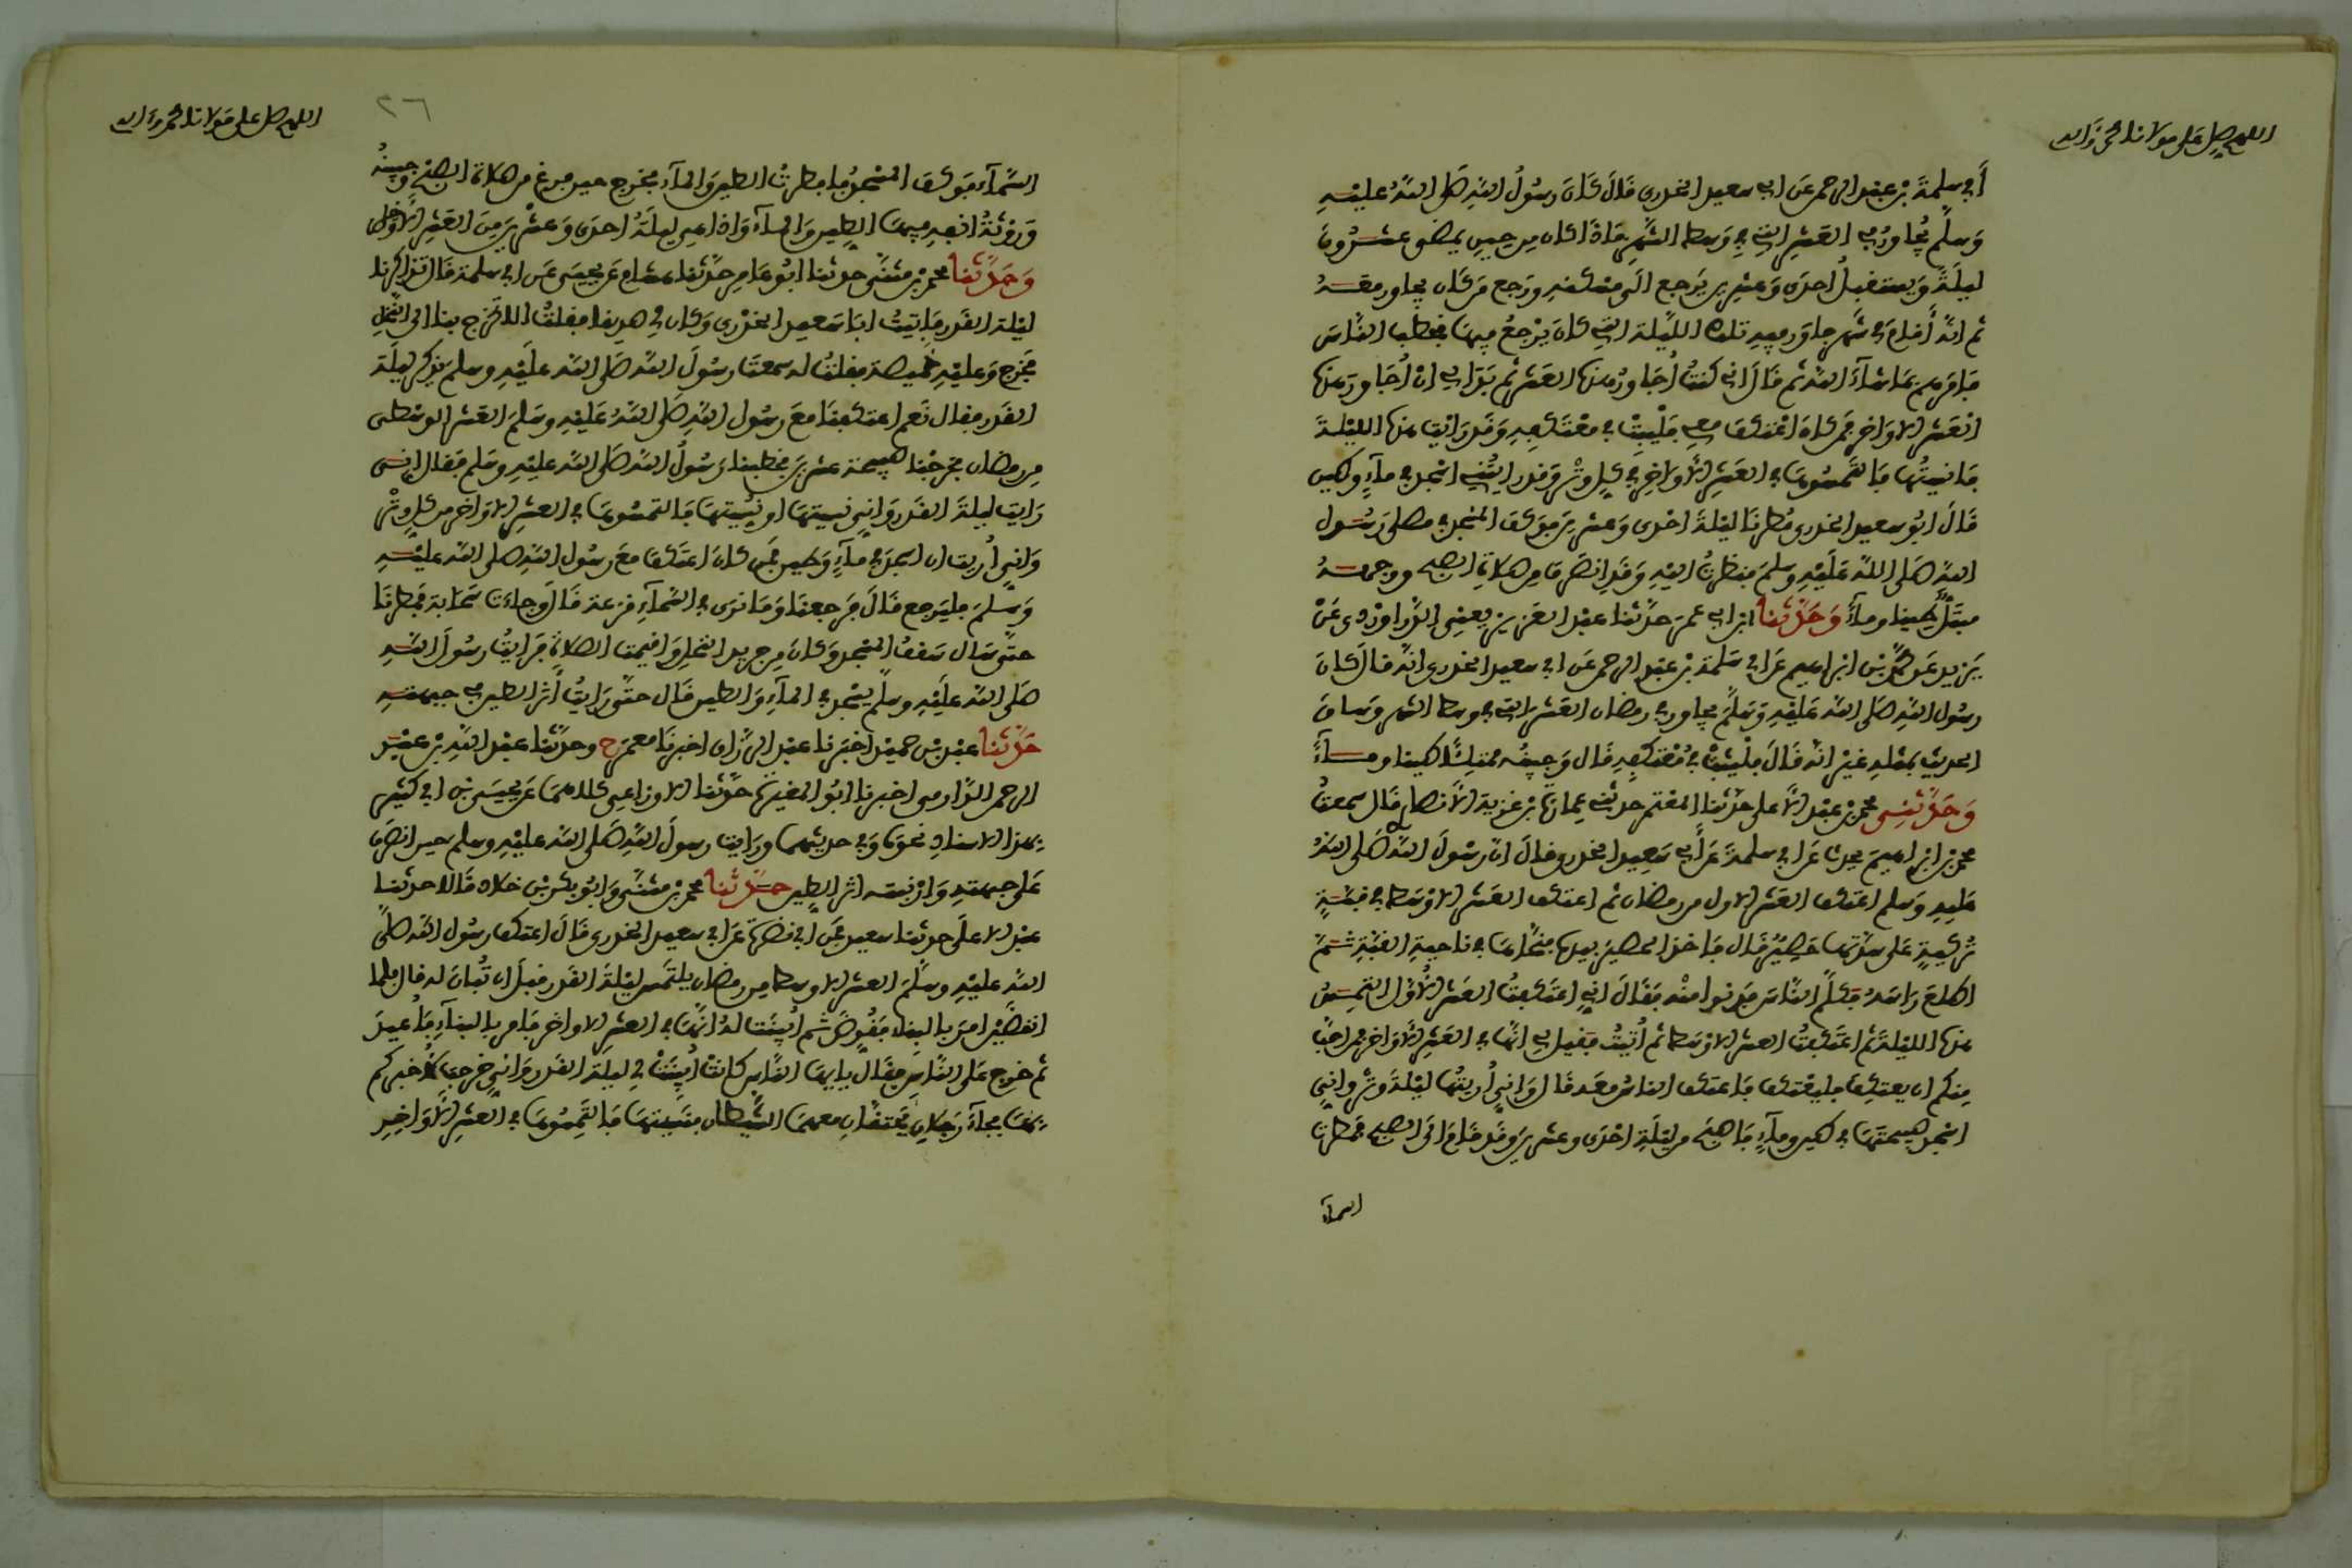 اللهم صل على مولانا محمد وآله
أبي سلمة بن عبد الرحمن عن ابي سعيد الخدري قال كان رسول الله صلى الله عليه
وسلم يجاور في العشر التي في وسط الشهر فاذا كان من حين يمضي عشرون
ليلة ويستقبل احدى وعشرين يرجع الى مسكنه ورجع من كان يجاور معه
ثم انه أقام في شهر جاور فيه تلك الليلة التي كان يرجع فيها فخطب الناس
فامرهم بما شاء الله ثم قال اني كنت أجاور هذه العشر ثم بدا لي ان أجاور هذه
العشر الاواخر فمن كان اعتكف معي فليبت في معتكفه وقد رايت هذه الليلة
فانسيتها فالتمسوها في العشر الأواخر في كل وتر وقد رايتني اسجد في ماء وطين
قال ابو سعيد الخدري مطرنا ليلة احدى وعشرين فوكف المسجد في مصلى رسول
الله صلى الله عليه وسلم فنظرت اليه وقد انصرف من صلاة الصبح ووجهه
مبتل طينا وماء وحدثنا ابن ابي عمر حدثنا عبد العزيز يعني الدراوردي عن
يزيد عن محمد بن ابراهيم عن ابي سلمة بن عبد الرحمن عن ابي سعيد الخدري انه قال كان
رسول الله صلى الله عليه وسلم يجاور في رمضان العشر التي في وسط الشهر وساق
الحديث بمثله غير انه قال فليثبت في معتكفه قال وجبينه ممتلئا طينا وماء
وحدثني محمد بن عبد الأعلى حدثنا المعتمر حدثني عمارة بن غزية الأنصاري قال سمعت
محمد بن ابراهيم يحدث عن ابي سلمة عن أبي سعيد الخدري قال ان رسول الله صلى الله
عليه وسلم اعتكف العشر الاول من رمضان ثم اعتكف العشر الاوسط في قبة
تركية على سدتها حصير قال فاخذ الحصير بيده فنحاها في ناحية القبة ثم
اطلع راسه فكلم الناس فدنوا منه فقال اني اعتكفت العشر الأول التمس
هذه الليلة ثم اعتكفت العشر الاوسط ثم أتيت فقيل لي انها في العشر الأواخر فمن احب
منكم ان يعتكف فليعتكف فاعتكف الناس معه قال واني أريتها ليلة وتر واني
اسجد صبيحتها في طين وماء فاصبح من ليلة احدى وعشرين وقد قام الى الصبح فمطرت
السماء
اللهم صل على مولانا محمد وءاله
٢٦
السماء فوكف المسجد فابصرت الطين والماء فخرج حين فرغ من صلاة الصبح وجبينه
وروثة انفه فيهما الطين والماء واذا هي ليلة احدى وعشرين من العشر الأواخر
وحدثنا محمد بن مثنى حدثنا ابو عامر حدثنا هشام عن يحيى عن ابي سلمة قال تذاكرنا
ليلة القدر فاتيت ابا سعيد الخدري وكان لي صديقا فقلت الا تخرج بنا الى النخل
فخرج وعليه خميصة فقلت له سمعت رسول الله صلى الله عليه وسلم يذكر ليلة
القدر فقال نعم اعتكفنا مع رسول الله صلى الله عليه وسلم العشر الوسطى
من رمضان فخرجنا صبيحة عشرين فخطبنا رسول الله صلى الله عليه وسلم فقال اني
رايت ليلة القدر واني نسيتها او نسيتها فالتمسوها في العشر الاواخر من كل وتر
واني أريت ان اسجد في ماء وطين فمن كان اعتكف مع رسول الله صلى الله عليه
وسلم فليرجع قال فرجعنا وما نرى في السماء قزعة قال وجاءت سحابة فمطرنا
حتى سال سقف المسجد وكان من جريد النخل واقيمت الصلاة فرايت رسول الله
صلى الله عليه وسلم يسجد في الماء والطين قال حتى رايت أثر الطين في جبهته
حدثنا عبد بن حميد اخبرنا عبد الرزاق اخبرنا معمر ح وحدثنا عبد الله بن عبد
الرحمن الدارمي اخبرنا ابو المغيرة حدثنا الاوزاعي كلاهما عن يحيى بن ابي كثير
بهذا الاسناد نحوه وفي حديثهما ورايت رسول الله صلى الله عليه وسلم حين انصرف
على جبهته وارنبته اثر الطين حدثنا محمد بن مثنى وابو بكر بن خلاد قالا حدثنا
عبد الاعلى حدثنا سعيد عن ابي نضرة عن ابي سعيد الخدري قال اعتكف رسول الله صلى
الله عليه وسلم العشر الاوسط من رمضان يلتمس ليلة القدر قبل ان تبان له قال فلما
انقضين امر بالبناء فقوض ثم أبينت له انها في العشر الاواخر فامر بالبناء فأعيد
ثم خرج على الناس فقال يايها الناس كانت أبينت لي ليلة القدر واني خرجت لأخبركم
بها فجاء رجلان يحتقان معهما الشيطان فنسيتها فالتمسوها في العشر الأواخر